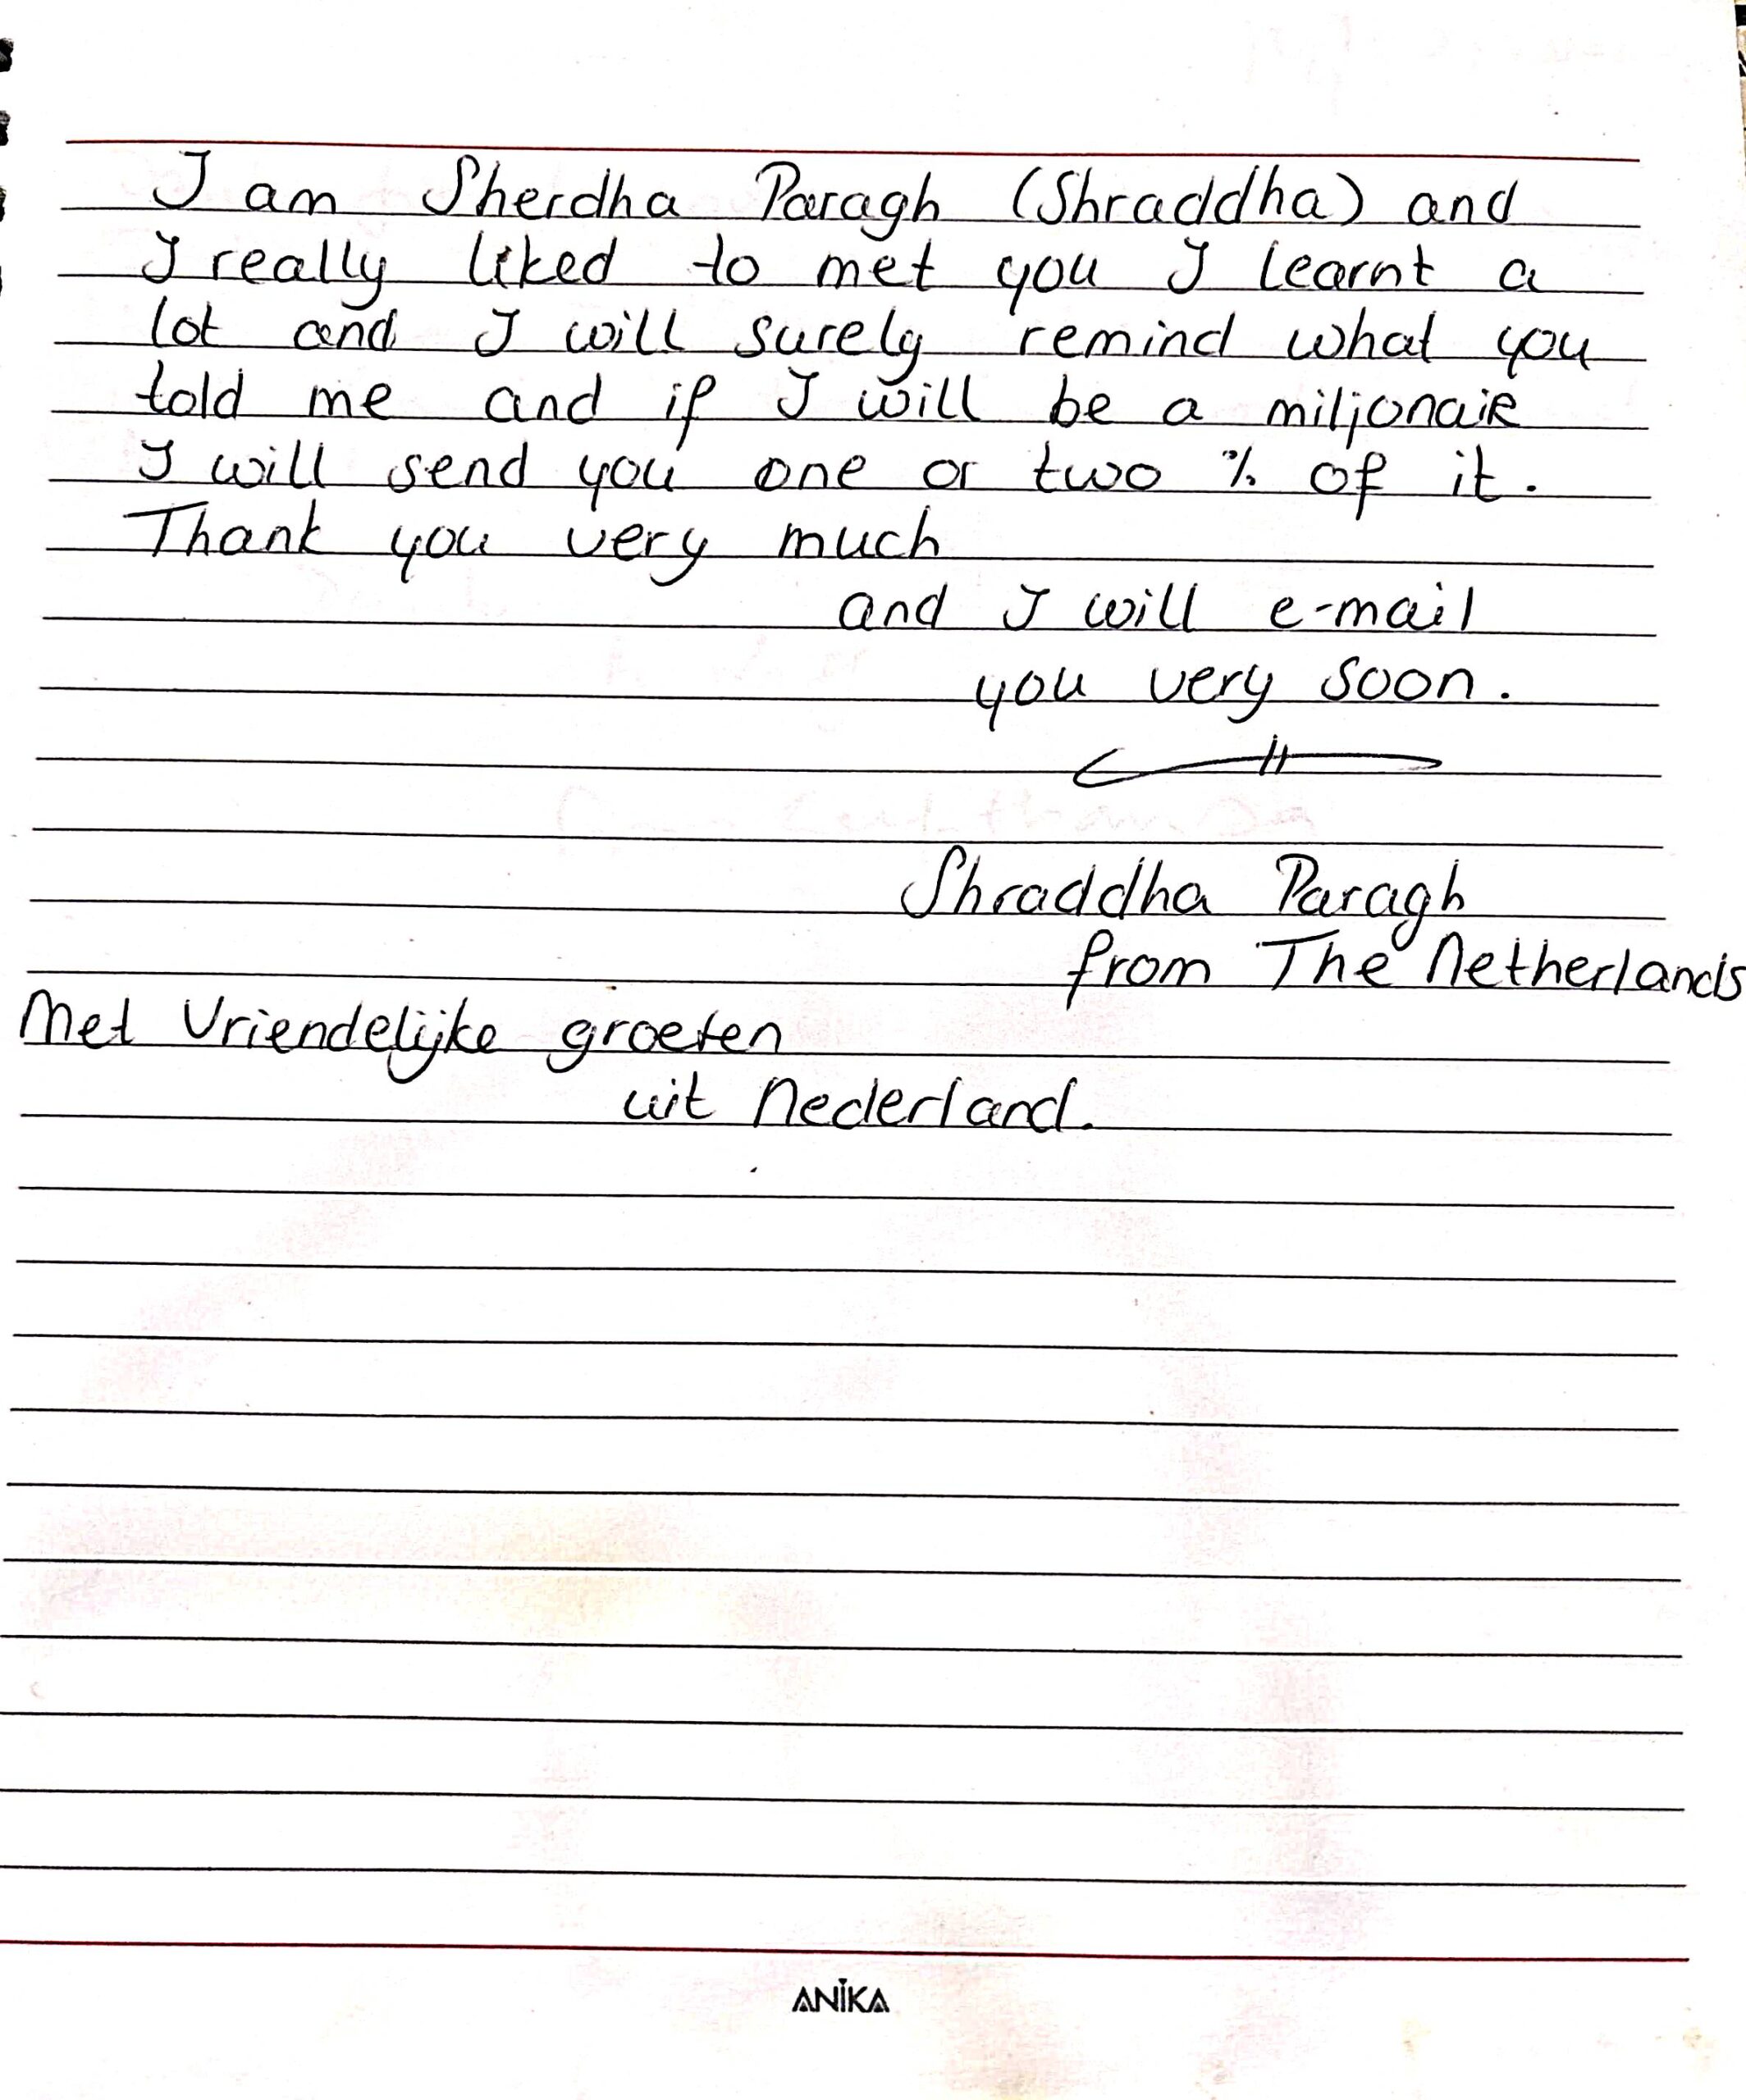 I am Sherdha Paragh (Shraddha) and
I really liked to met you I learnt a
lot and I will surely remind what you
told me and if I will be a miljonair
I will send you one or two % of it.
Thank you very much
and I will e-mail
you very soon.
Shraddha Paragh
from The Netherlands
Met Vriendelijke groeten
uit Nederland.
ANIKA